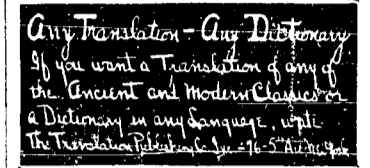 Any Translation - Any Dictionary
If you want a Translation of any of
the Ancient and Modern Classics or
a Dictionary in any Language, write
The Translation Publishing Co. Inc - 76 - 5th Ave New York